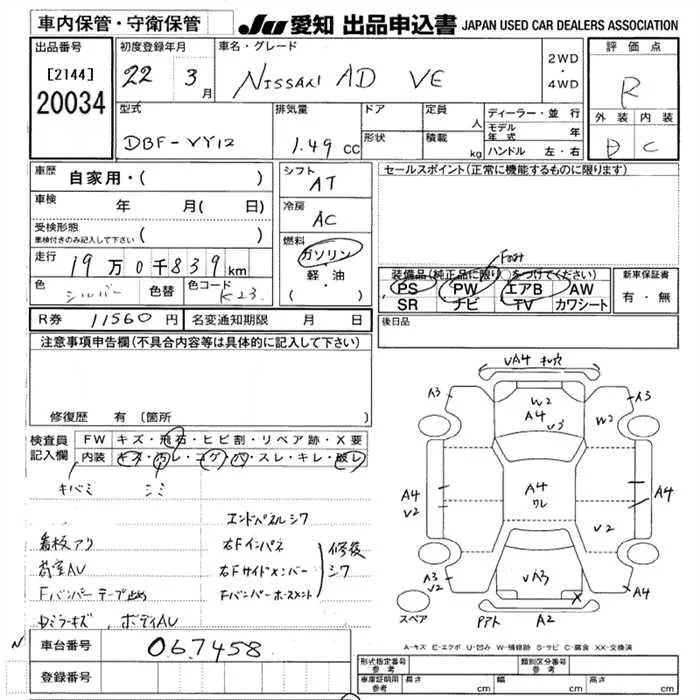 車内保管・守衛保管
JU 愛知 出品申込書 JAPAN USED CAR DEALERS ASSOCIATION
出品番号
[2144]
20034
初度登録年月
22 3月
車名・グレード
NISSAN AD VE
2WD
・
4WD
評価点
R
外装 内装
D C
型式
DBF-VY12
排気量
1.49 cc
ドア
形状
定員 人
積載 kg
ディーラー・並行
モデル年式 年
ハンドル 左・右
車歴
自家用・( )
車検
年 月( 日)
受検形態
車検付きのみ記入して下さい ( )
走行
19万0千839km
色
シルバー
色替
色コード
K23
シフト
AT
冷房
AC
燃料
ガソリン
・
軽・油
( )
R券 11560円
名変通知期限 月 日
セールスポイント(正常に機能するものに限ります)
装備品(純正品に限り○をつけてください)
PS PW エアB AW
SR ナビ TV カワシート
新車保証書
有・無
後日品
注意事項申告欄(不具合内容等は具体的に記入して下さい)
修復歴 有 〔箇所 〕
検査員
記入欄
FW キズ・飛石・ヒビ割・リペア跡・X要
内装 キズ・汚レ・コゲ・穴・スレ・キレ・破レ
キバミ シミ
エンドパネルシワ
看板アリ
右Fインパネ
修復
シワ
荷室AU
右Fサイドメンバー
Fバンパーテープ止め
Fバンパーホースメント
Dミラーキズ ボディAU
車台番号
067458
登録番号
UA4 キレ穴
A3
A3
W2
A4
U3
W2
A4
U2
A4
ワレ
A4
U2
UA3
A3
U2
X
A4
スペア
Pアト A2
A-キズ E-エクボ U-凹み W-補修跡 S-サビ C-腐食 XX-交換済
形式指定番号
参考
類別区分番号
参考
車庫証明用
参考
長さ cm
幅 cm
高さ cm